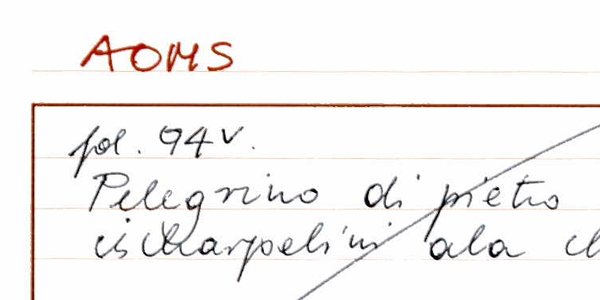 AOMS
fol. 94v.
Pelegrino di pietro
ischarpelini ala